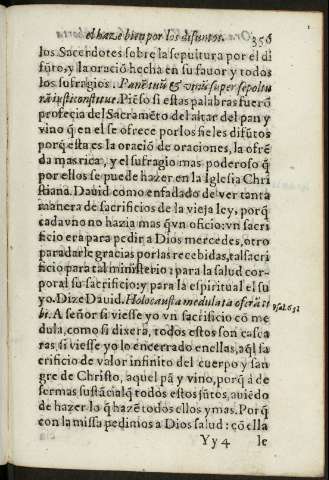 el hazer bien por los difuntos. 356
los Sacerdotes sobre la sepultura por el di
fũto, y la oraciõ hecha en su fauor y todos
los sufragios. Panẽ tuũ & vinũ super sepoltu
rã iusti constitue. Piẽso si estas palabras fuerõ
profecia del Sacramẽto del altar de pan y
vino q̃ en el se ofrece por los fieles difũtos
porq̃ esta es la oraciõ de oraciones, la ofrẽ
da mas rica, y el sufragio mas poderoso q̃
por ellos se puede hazer en la Iglesia Chri
stiana. Dauid como enfadado de ver tanta
manera de sacrificios de la vieja ley, porq̃
cada vno no hazia mas q̃ vn oficio: vn sacri
ficio era para pedir a Dios mercedes, otro
para darle gracias por las recebidas, tal sacri
ficio para tal ministerio: para la salud cor-
poral su sacrificio: y para la espiritual el su
yo. Dize Dauid. Holocausta medulata oferã ti
bi. A señor si viesse yo vn sacrificio cõ me
dula, como si dixera, todos estos son casca
ras, si viesse yo lo encerrado en ellas, aq̃l sa
crificio de valor infinito del cuerpo y san
gre de Christo, aquel pã y vino, porq̃ à de
formas sustãciales todos estos jũtos, auiẽdo
de hazer lo q̃ hazẽ todos ellos y mas. Porq̃
con la missa pedimos a Dios salud: cõ ella
Yy 4 le